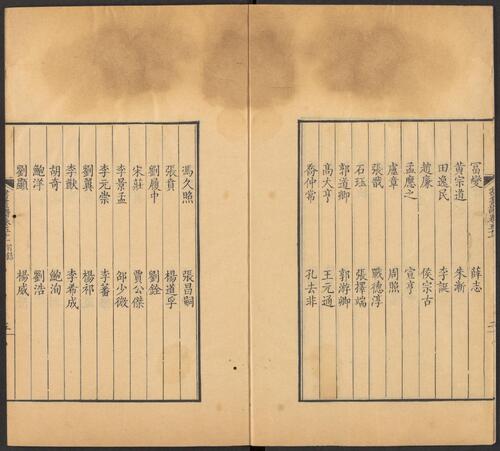 冨燮 薛志
黄宗道 朱漸
田逸民 李誕
趙廉 侯宗古
孟應之 宣亨
盧章 周照
張戩 戰德淳
石珏 張擇端
郭道卿 郭游卿
髙大亨 王元通
喬仲常 孔去非
馮久照 張昌嗣
張賁 楊道孚
劉履中 劉銓
宋莊 賈公傑
李景孟 邵少微
李元崇 李蕃
劉翼 楊祁
李猷 李希成
胡奇 鮑洵
鮑洋 劉浩
劉顯 楊威